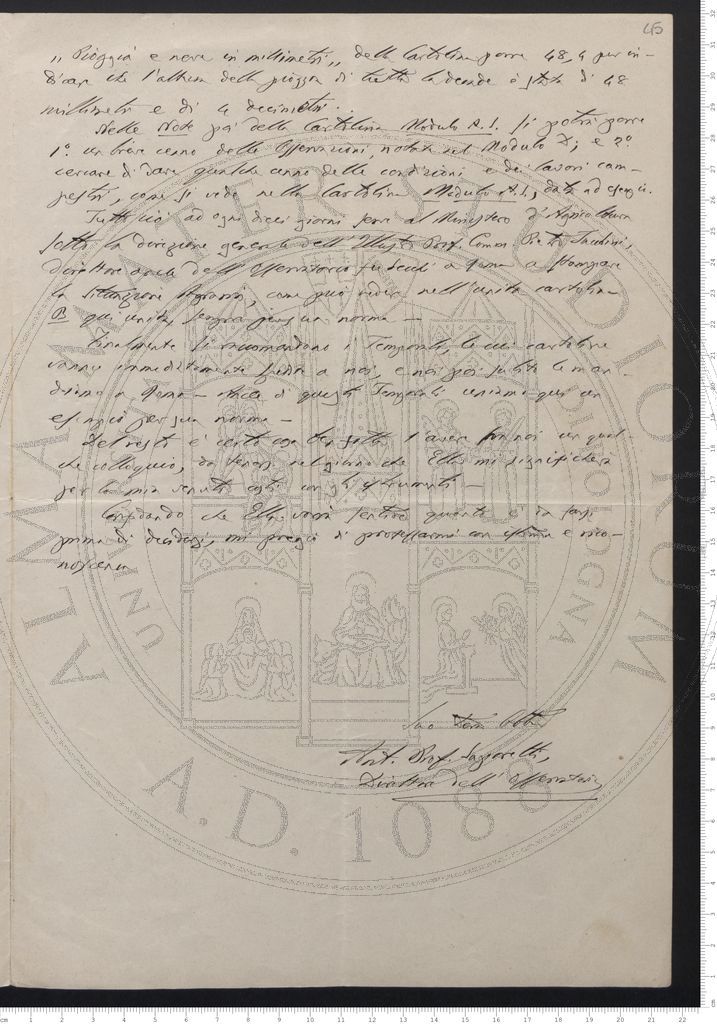 45
„ Pioggia e neve in millimetri „ della Cartolina porre 48,4 per in-
dicare che l'altezza della pioggia di tutta la decade è stata di 48
millimetri e di 4 decimetri.
Nelle Note poi della Cartolina Modulo A.1. si potrà porre
1°. un breve cenno delle Osservazioni, notate nel Modulo D; e 2°.
cercare di dare qualche cenno delle condizioni e dei lavori cam-
pestri, come si vede nella Cartolina Modulo A.1, data ad esempio.
Tutto ciò ad ogni dieci giorni serve al Ministero d'Agricoltura
sotto la direzione generale dell' Illustre Prof. Comm. Pietro Tacchini,
direttore anche dell' Osservatorio a Roma a stampare
la situazione agraria, come può vedere nell'unita cartolina
B qui unita, sempre per sua norma. —
Finalmente si raccomandano i Temporali, le cui cartoline
vanno immediatamente spedite a noi, e noi poi subito le man-
diamo a Roma — Anche di questi Temporali uniamo qui un
esempio per sua norma —
Del resto è certo cosa ben fatta l'avere con noi un qual-
che colloquio, da tenersi nel giorno che Ella mi significherà
per la mia venuta costì con gli istrumenti —
Confidando che Ella vorrà sentire quanto è da farsi
prima di decidersi, mi pregio di professarmi con stima e rico-
noscenza
Suo
Ant. Prof. Saporetti,
Direttore dell' Osservatorio
ALMA MATER STUDIORUM
UNIVERSITÀ DI BOLOGNA
A.D. 1088